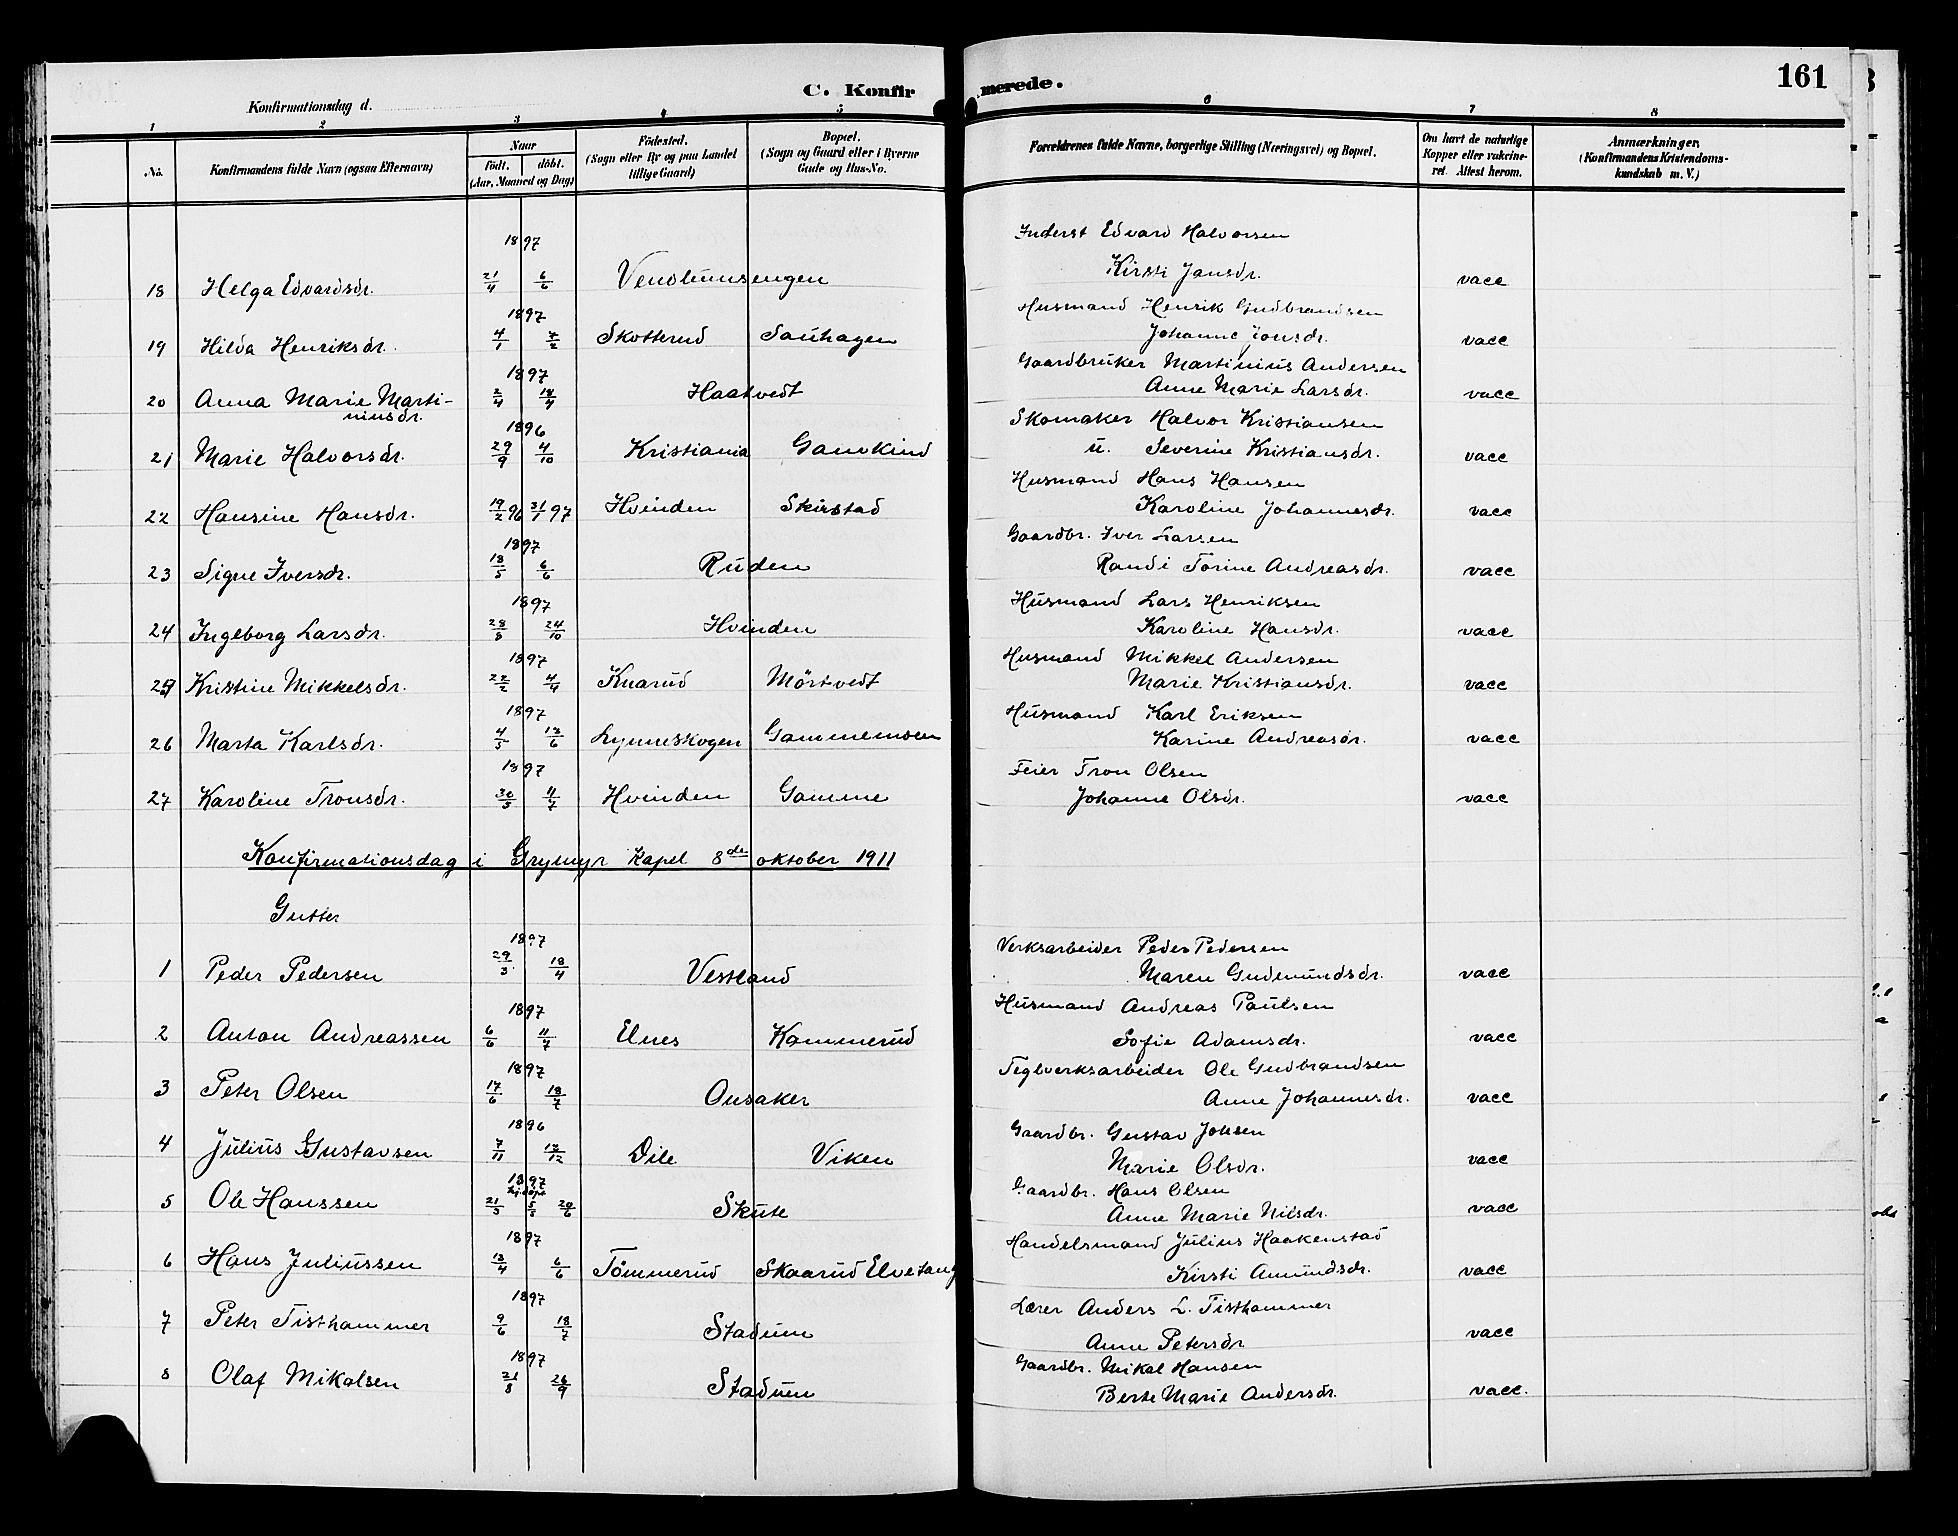 C. Konfirmerede.
161
Konfirmationsdag d.
1 2 3 4 5 6 7 8
No. Konfirmandens fulde Navn (ogsaa Efternavn) Naar født. døbt. (Aar, Maaned og Dag) Fødested. (Sogn eller By og paa Landet tillige Gaard) Bopæl. (Sogn og Gaard eller i Byerne Gade og Hus-No. Forældrenes fulde Navne, borgerlige Stilling (Næringsvei) og Bopæl. Om havt de naturlige Kopper eller vakcineret. Attest herom. Anmærkninger. (Konfirmandens Kristendomskundskab m. V.)
1897 Inderst Edvard Halvorsen
18 Helga Edvardsdr. 21/4 6/6 Vendlumsengen Kirsti Jansdr. vacc
1897 Husmand Henrik Gudbrandsen
19 Hilda Henriksdr. 4/1 7/2 Skotterud Sauhagen Johanne Jonsdr. vacc
1897 Gaardbruker Martinius Andersen
20 Anna Marie Marti- 2/4 18/4 Haatvedt Anne Marie Larsdr. vacc
niusdr.
1896 Skomaker Halvor Kristiansen
21 Marie Halvorsdr. 29/9 4/10 Kristiania Gamkind u. Severine Kristiansdr. vacc
Husmand Hans Hansen
22 Hansine Hansdr. 19/2 96 31/1 97 Hvinden Skirstad Karoline Johannesdr. vacc
1897 Gaardbr. Iver Larsen
23 Signe Iversdr. 18/5 6/6 Ruden Randi Torine Andreasdr. vacc
1897 Husmand Lars Henriksen
24 Ingeborg Larsdr. 28/8 24/10 Hvinden Karoline Hansdr. vacc
1897 Husmand Mikkel Andersen
25 Kristine Mikkelsdr. 22/2 4/4 Knarud Mörtvedt Marie Kristiansdr. vacc
1897 Husmand Karl Eriksen
26 Marta Karlsdr. 4/5 13/6 Lynneskogen Gammemoen Karine Andreasdr. vacc
1897 Feier Tron Olsen
27 Karoline Tronsdr. 30/5 11/7 Hvinden Gamme Johanne Olsdr. vacc
Konfirmationsdag i Grymyr Kapel 8de oktober 1911
Gutter
1897 Verksarbeider Peder Pedersen
1 Peder Pedersen 29/3 18/4 Vestland Maren Gudmundsdr. vacc
1897 Husmand Andreas Paulsen
2 Anton Andreassen 6/6 11/7 Elnes Kammerud Sofie Adamsdr. vacc
1897 Teglverksarbeider Ole Gudbrandsen
3 Peter Olsen 17/6 18/7 Onsaker Anne Johannesdr. vacc
1896 Gaardbr. Gustav Johsen
4 Julius Gustavsen 7/11 13/12 Dile Viken Marie Olsdr. vacc
1897 Gaardbr. Hans Olsen
5 Ole Hanssen 21/3 5/5 20/6 Skute Anne Marie Nilsdr. vacc
1897 Handelsmand Julius Haakenstad
6 Hans Juliussen 13/4 6/6 Tömmerud Skaarud Elvetang Kirsti Amundsdr. vacc
1897 Lærer Anders L. Tisthammer
7 Peter Tisthammer 9/6 18/7 Stadum Anne Petersdr vacc
1897 Gaardbr. Mikal Hansen
8 Olaf Mikalsen 21/8 26/9 Stadum Berte Marie Andersdr. vacc.